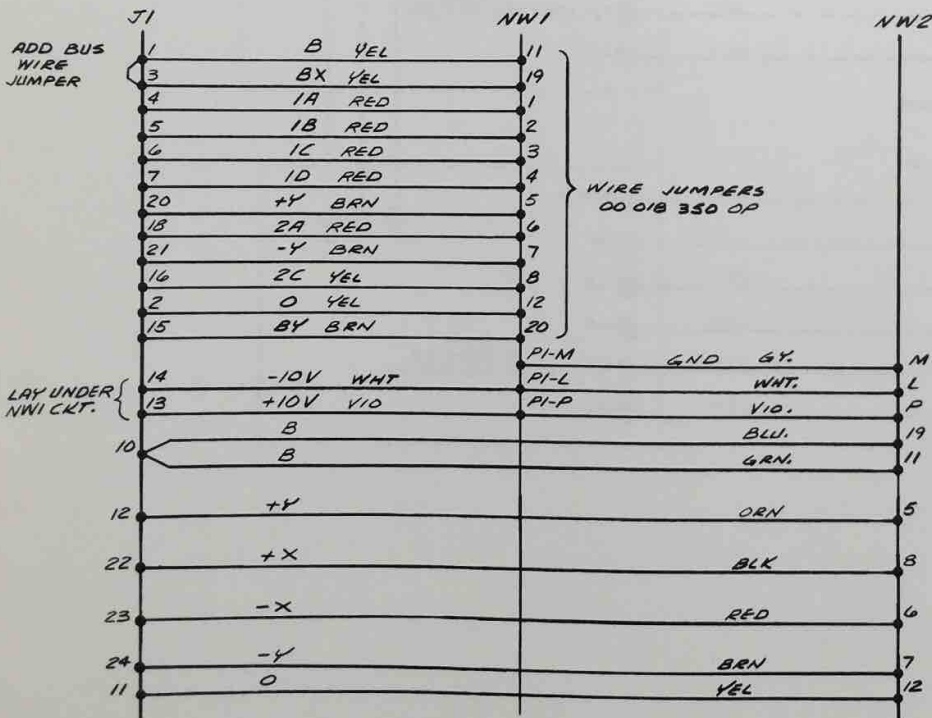 J1 NW1 NW2
ADD BUS
WIRE
JUMPER
1 B YEL 11
3 BX YEL 19
4 1A RED 1
5 1B RED 2
6 1C RED 3
7 1D RED 4
20 +Y BRN 5
18 2A RED 6
21 -Y BRN 7
16 2C YEL 8
2 O YEL 12
15 BY BRN 20
WIRE JUMPERS
00 018 350 OP
P1-M GND GY. M
LAY UNDER
NW1 CKT.
14 -10V WHT P1-L WHT. L
13 +10V VIO P1-P VIO. P
10 B BLU. 19
B GRN. 11
12 +Y ORN 5
22 +X BLK 8
23 -X RED 6
24 -Y BRN 7
11 O YEL 12